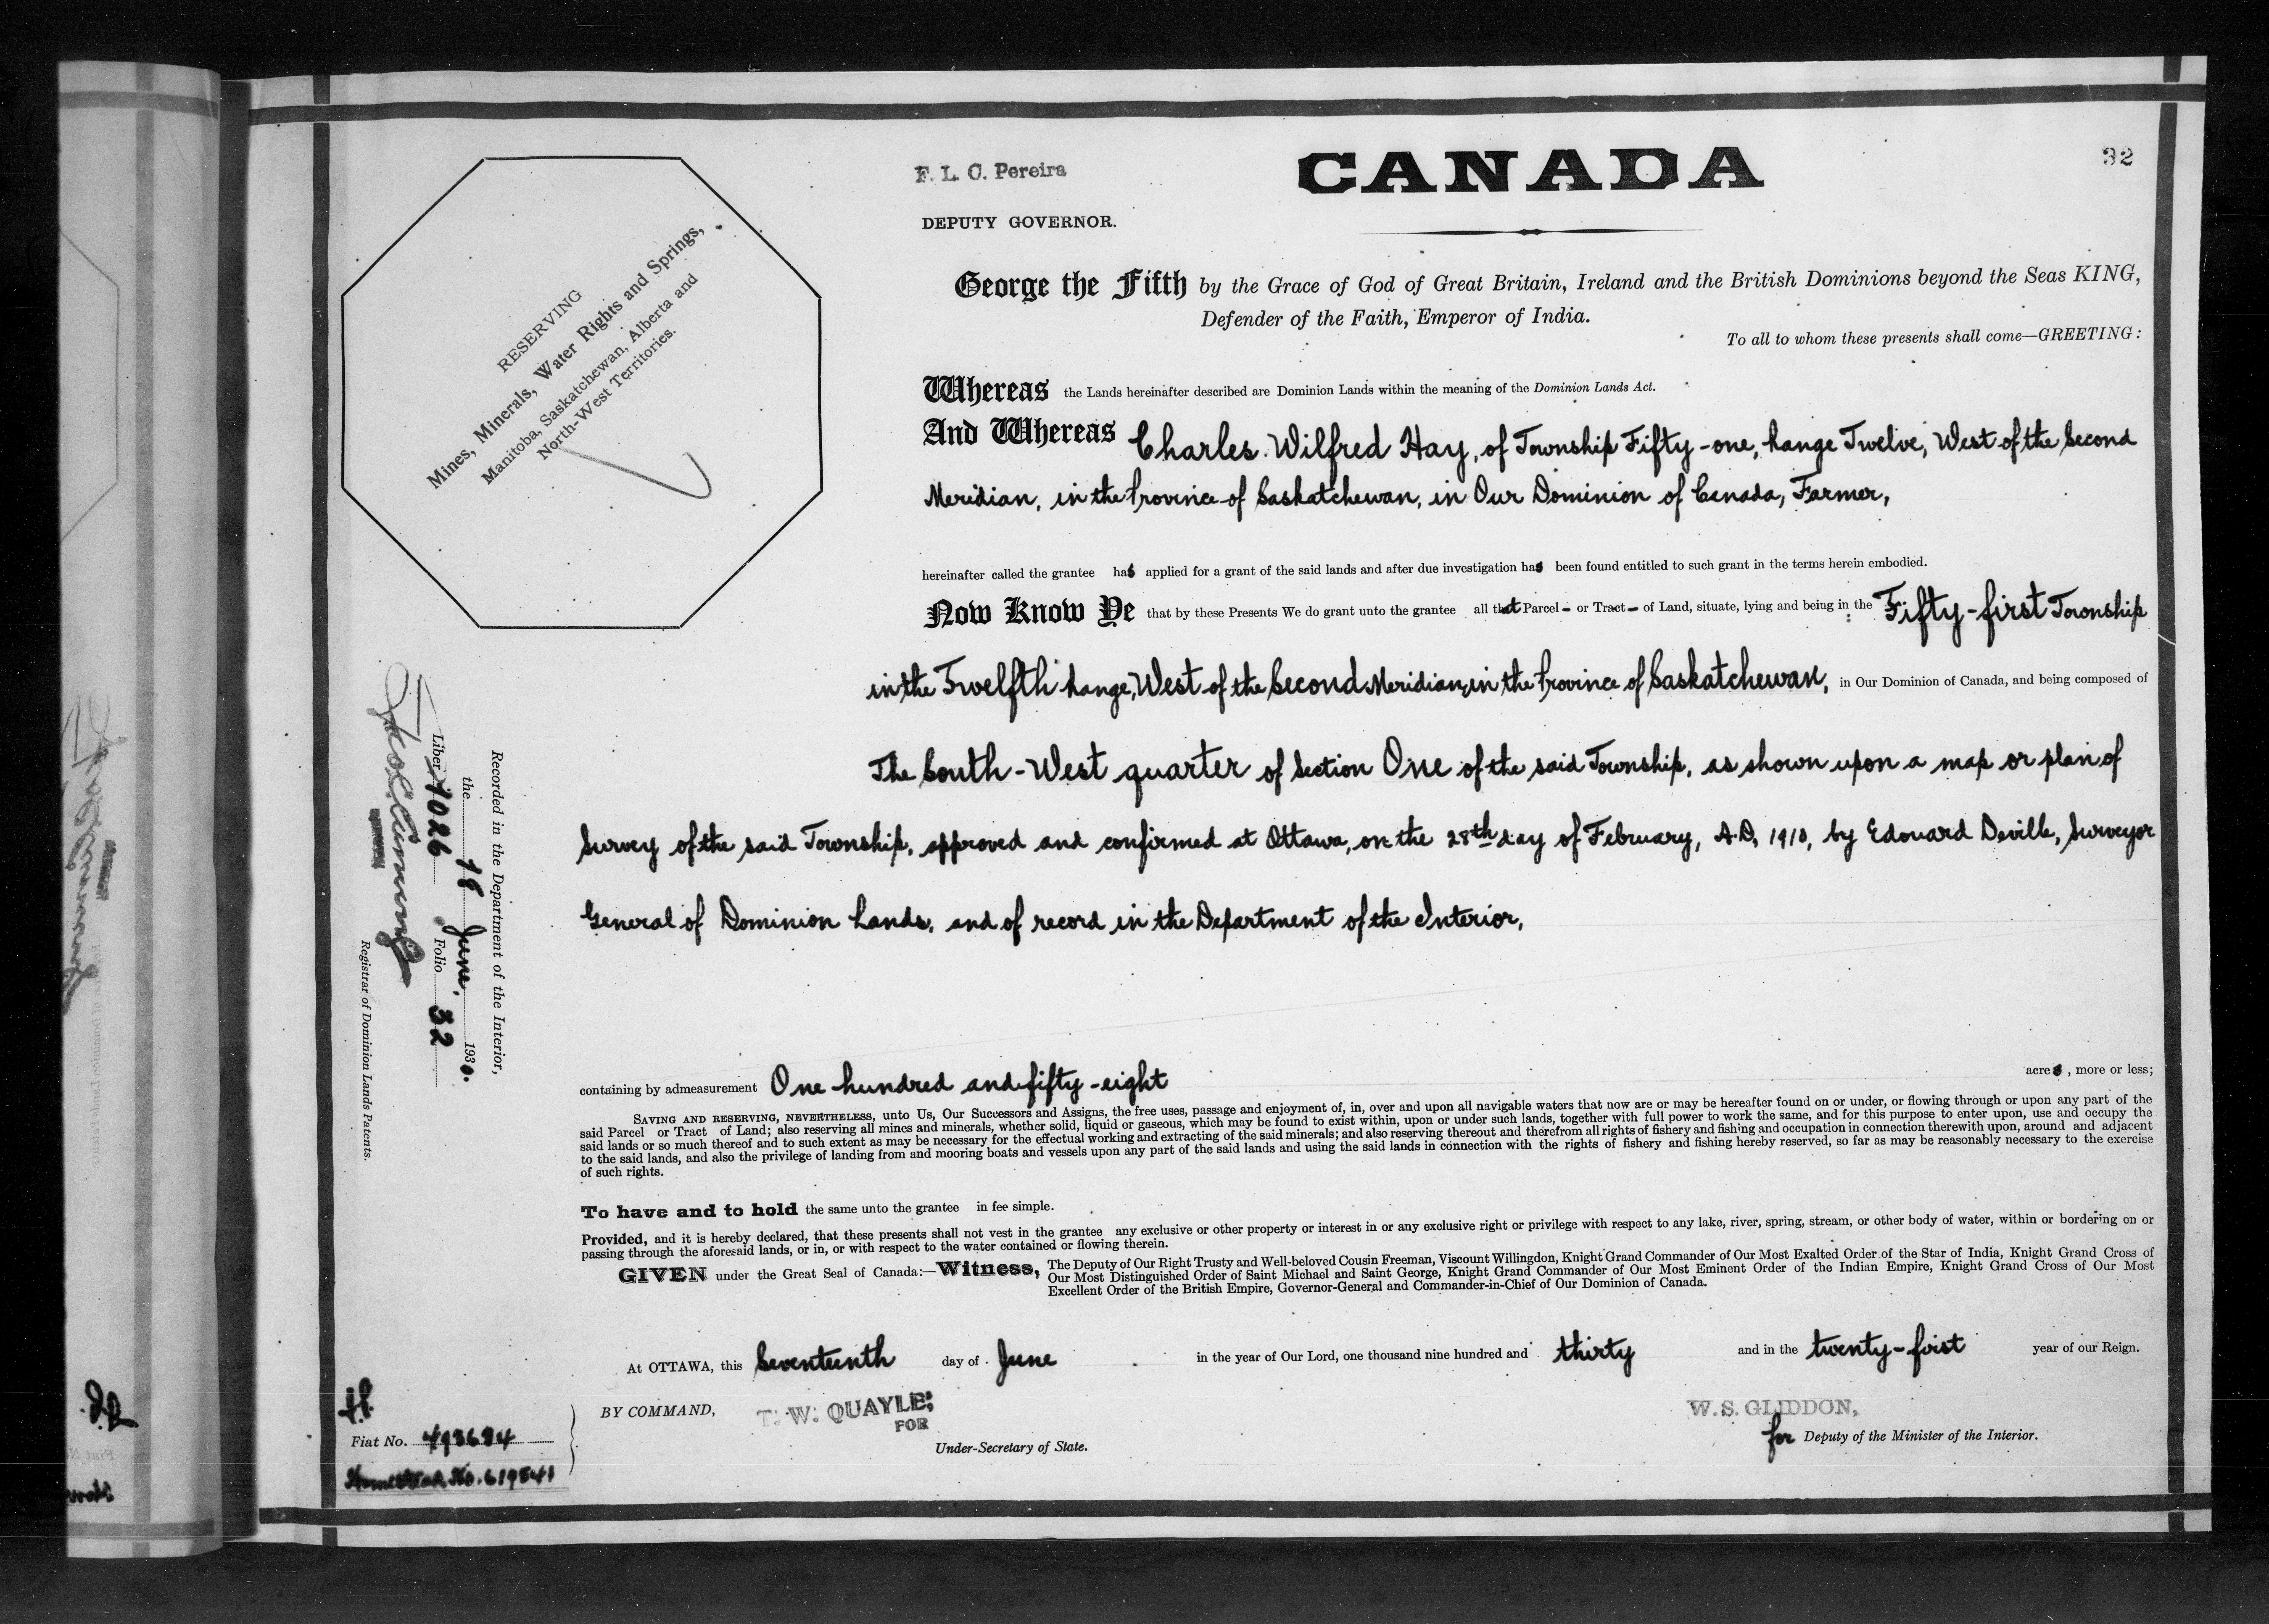 32
F. L. C. Pereira
DEPUTY GOVERNOR.
CANADA
RESERVING
Mines, Minerals, Water Rights and Springs,
Manitoba, Saskatchewan, Alberta and
North-West Territories.
George the Fifth by the Grace of God of Great Britain, Ireland and the British Dominions beyond the Seas KING,
Defender of the Faith, Emperor of India.
To all to whom these presents shall come—GREETING:
Whereas the Lands hereinafter described are Dominion Lands within the meaning of the Dominion Lands Act.
And Whereas Charles Wilfred Hay, of Township Fifty-one, Range Twelve, West of the Second
Meridian, in the Province of Saskatchewan, in Our Dominion of Canada, Farmer,
hereinafter called the grantee has applied for a grant of the said lands and after due investigation has been found entitled to such grant in the terms herein embodied.
Now Know Ye that by these Presents We do grant unto the grantee all that Parcel - or Tract - of Land, situate, lying and being in the Fifty-first Township
in the Twelfth Range, West of the Second Meridian, in the Province of Saskatchewan, in Our Dominion of Canada, and being composed of
The South-West quarter of Section One of the said Township, as shown upon a map or plan of
Survey of the said Township, approved and confirmed at Ottawa, on the 28th day of February, A.D. 1910, by Edouard Deville, Surveyor
General of Dominion Lands, and of record in the Department of the Interior,
containing by admeasurement One hundred and fifty-eight acres, more or less;
SAVING AND RESERVING, NEVERTHELESS, unto Us, Our Successors and Assigns, the free uses, passage and enjoyment of, in, over and upon all navigable waters that now are or may be hereafter found on or under, or flowing through or upon any part of the
said Parcel or Tract of Land; also reserving all mines and minerals, whether solid, liquid or gaseous, which may be found to exist within, upon or under such lands, together with full power to work the same, and for this purpose to enter upon, use and occupy the
said lands or so much thereof and to such extent as may be necessary for the effectual working and extracting of the said minerals; and also reserving thereout and therefrom all rights of fishery and fishing and occupation in connection therewith upon, around and adjacent
to the said lands, and also the privilege of landing from and mooring boats and vessels upon any part of the said lands and using the said lands in connection with the rights of fishery and fishing hereby reserved, so far as may be reasonably necessary to the exercise
of such rights.
To have and to hold the same unto the grantee in fee simple.
Provided, and it is hereby declared, that these presents shall not vest in the grantee any exclusive or other property or interest in or any exclusive right or privilege with respect to any lake, river, spring, stream, or other body of water, within or bordering on or
passing through the aforesaid lands, or in, or with respect to the water contained or flowing therein.
GIVEN under the Great Seal of Canada:—Witness, The Deputy of Our Right Trusty and Well-beloved Cousin Freeman, Viscount Willingdon, Knight Grand Commander of Our Most Exalted Order of the Star of India, Knight Grand Cross of
Our Most Distinguished Order of Saint Michael and Saint George, Knight Grand Commander of Our Most Eminent Order of the Indian Empire, Knight Grand Cross of Our Most
Excellent Order of the British Empire, Governor-General and Commander-in-Chief of Our Dominion of Canada.
At OTTAWA, this Seventeenth day of June in the year of Our Lord, one thousand nine hundred and thirty and in the twenty-first year of our Reign.
BY COMMAND, T. W. QUAYLE,
FOR
Under-Secretary of State.
W. S. GLIDDON,
for Deputy of the Minister of the Interior.
Recorded in the Department of the Interior,
the 18 June, 1930.
Liber 1026 Folio 32
Registrar of Dominion Lands Patents.
Fiat No. 498684
Homestead No. 619541